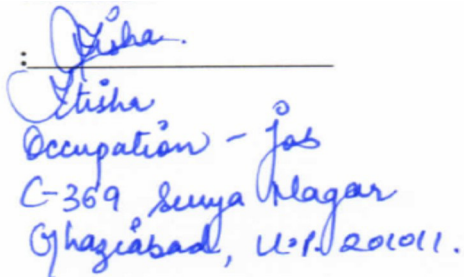 : Itisha.
Itisha
Occupation - Job
C-369 Surya Nagar
Ghaziabad, U.P. 201011.